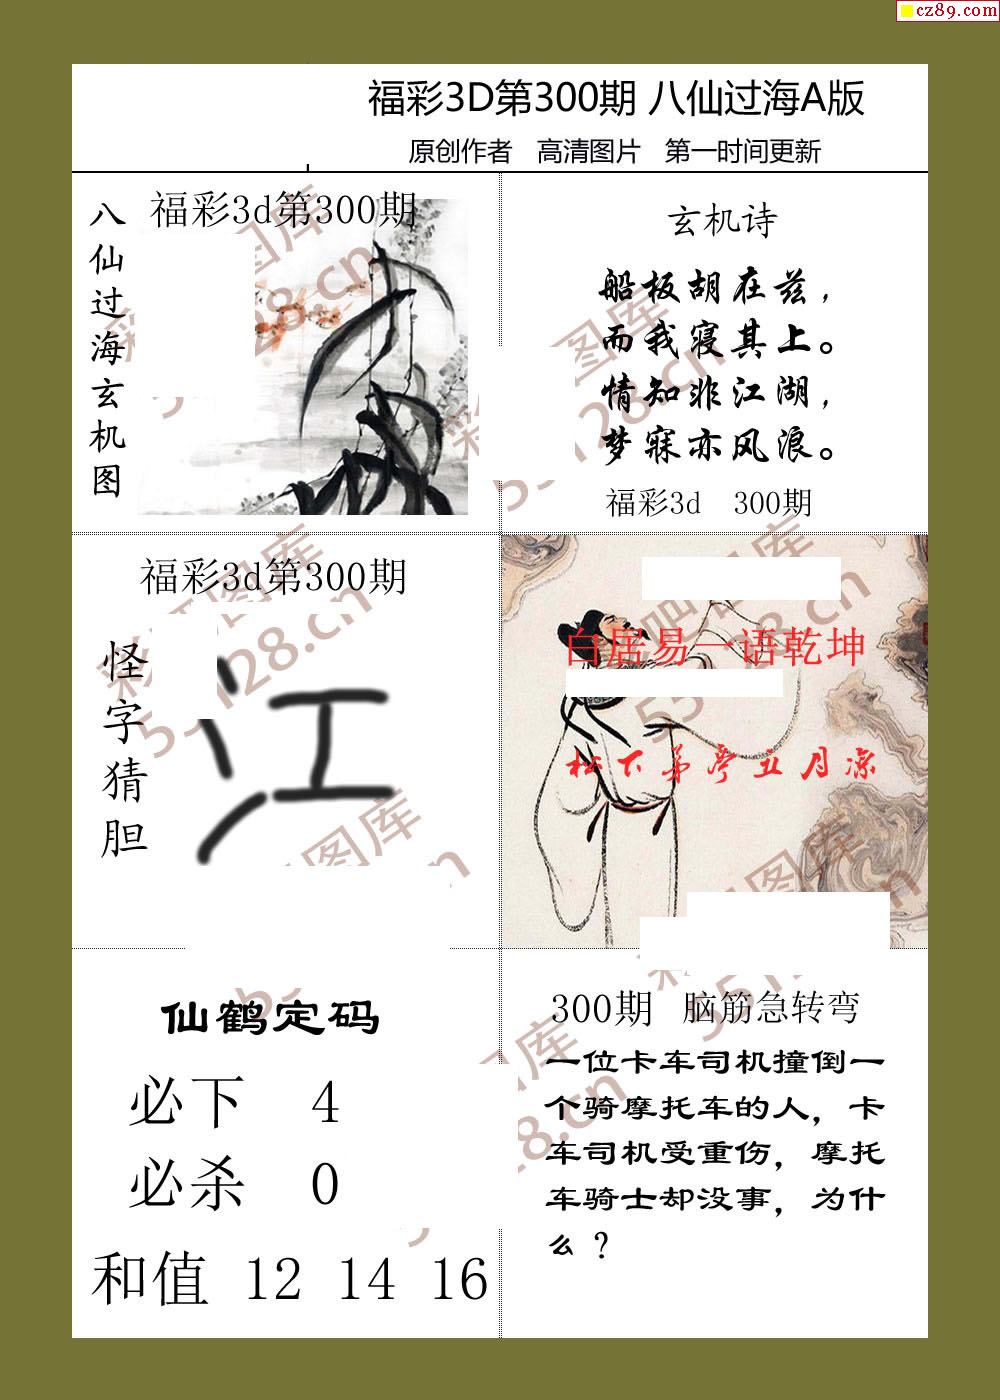 cz89.com
福彩3D第300期 八仙过海A版
原创作者 高清图片 第一时间更新
福彩3d第300期
八仙过海玄机图
玄机诗
船板胡在兹，
而我寝其上。
情知非江湖，
梦寐亦风浪。
福彩3d 300期
福彩3d第300期
怪字猜胆
江
白居易一语乾坤
松下茅亭五月凉
仙鹤定码
必下 4
必杀 0
和值 12 14 16
300期 脑筋急转弯
一位卡车司机撞倒一
个骑摩托车的人，卡
车司机受重伤，摩托
车骑士却没事，为什
么？